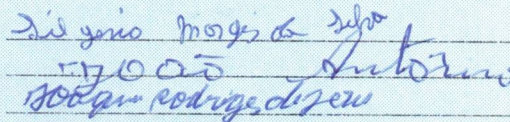 Silgerio Morges da Silva
João Antônio
Joaquim Rodriges de Jesus